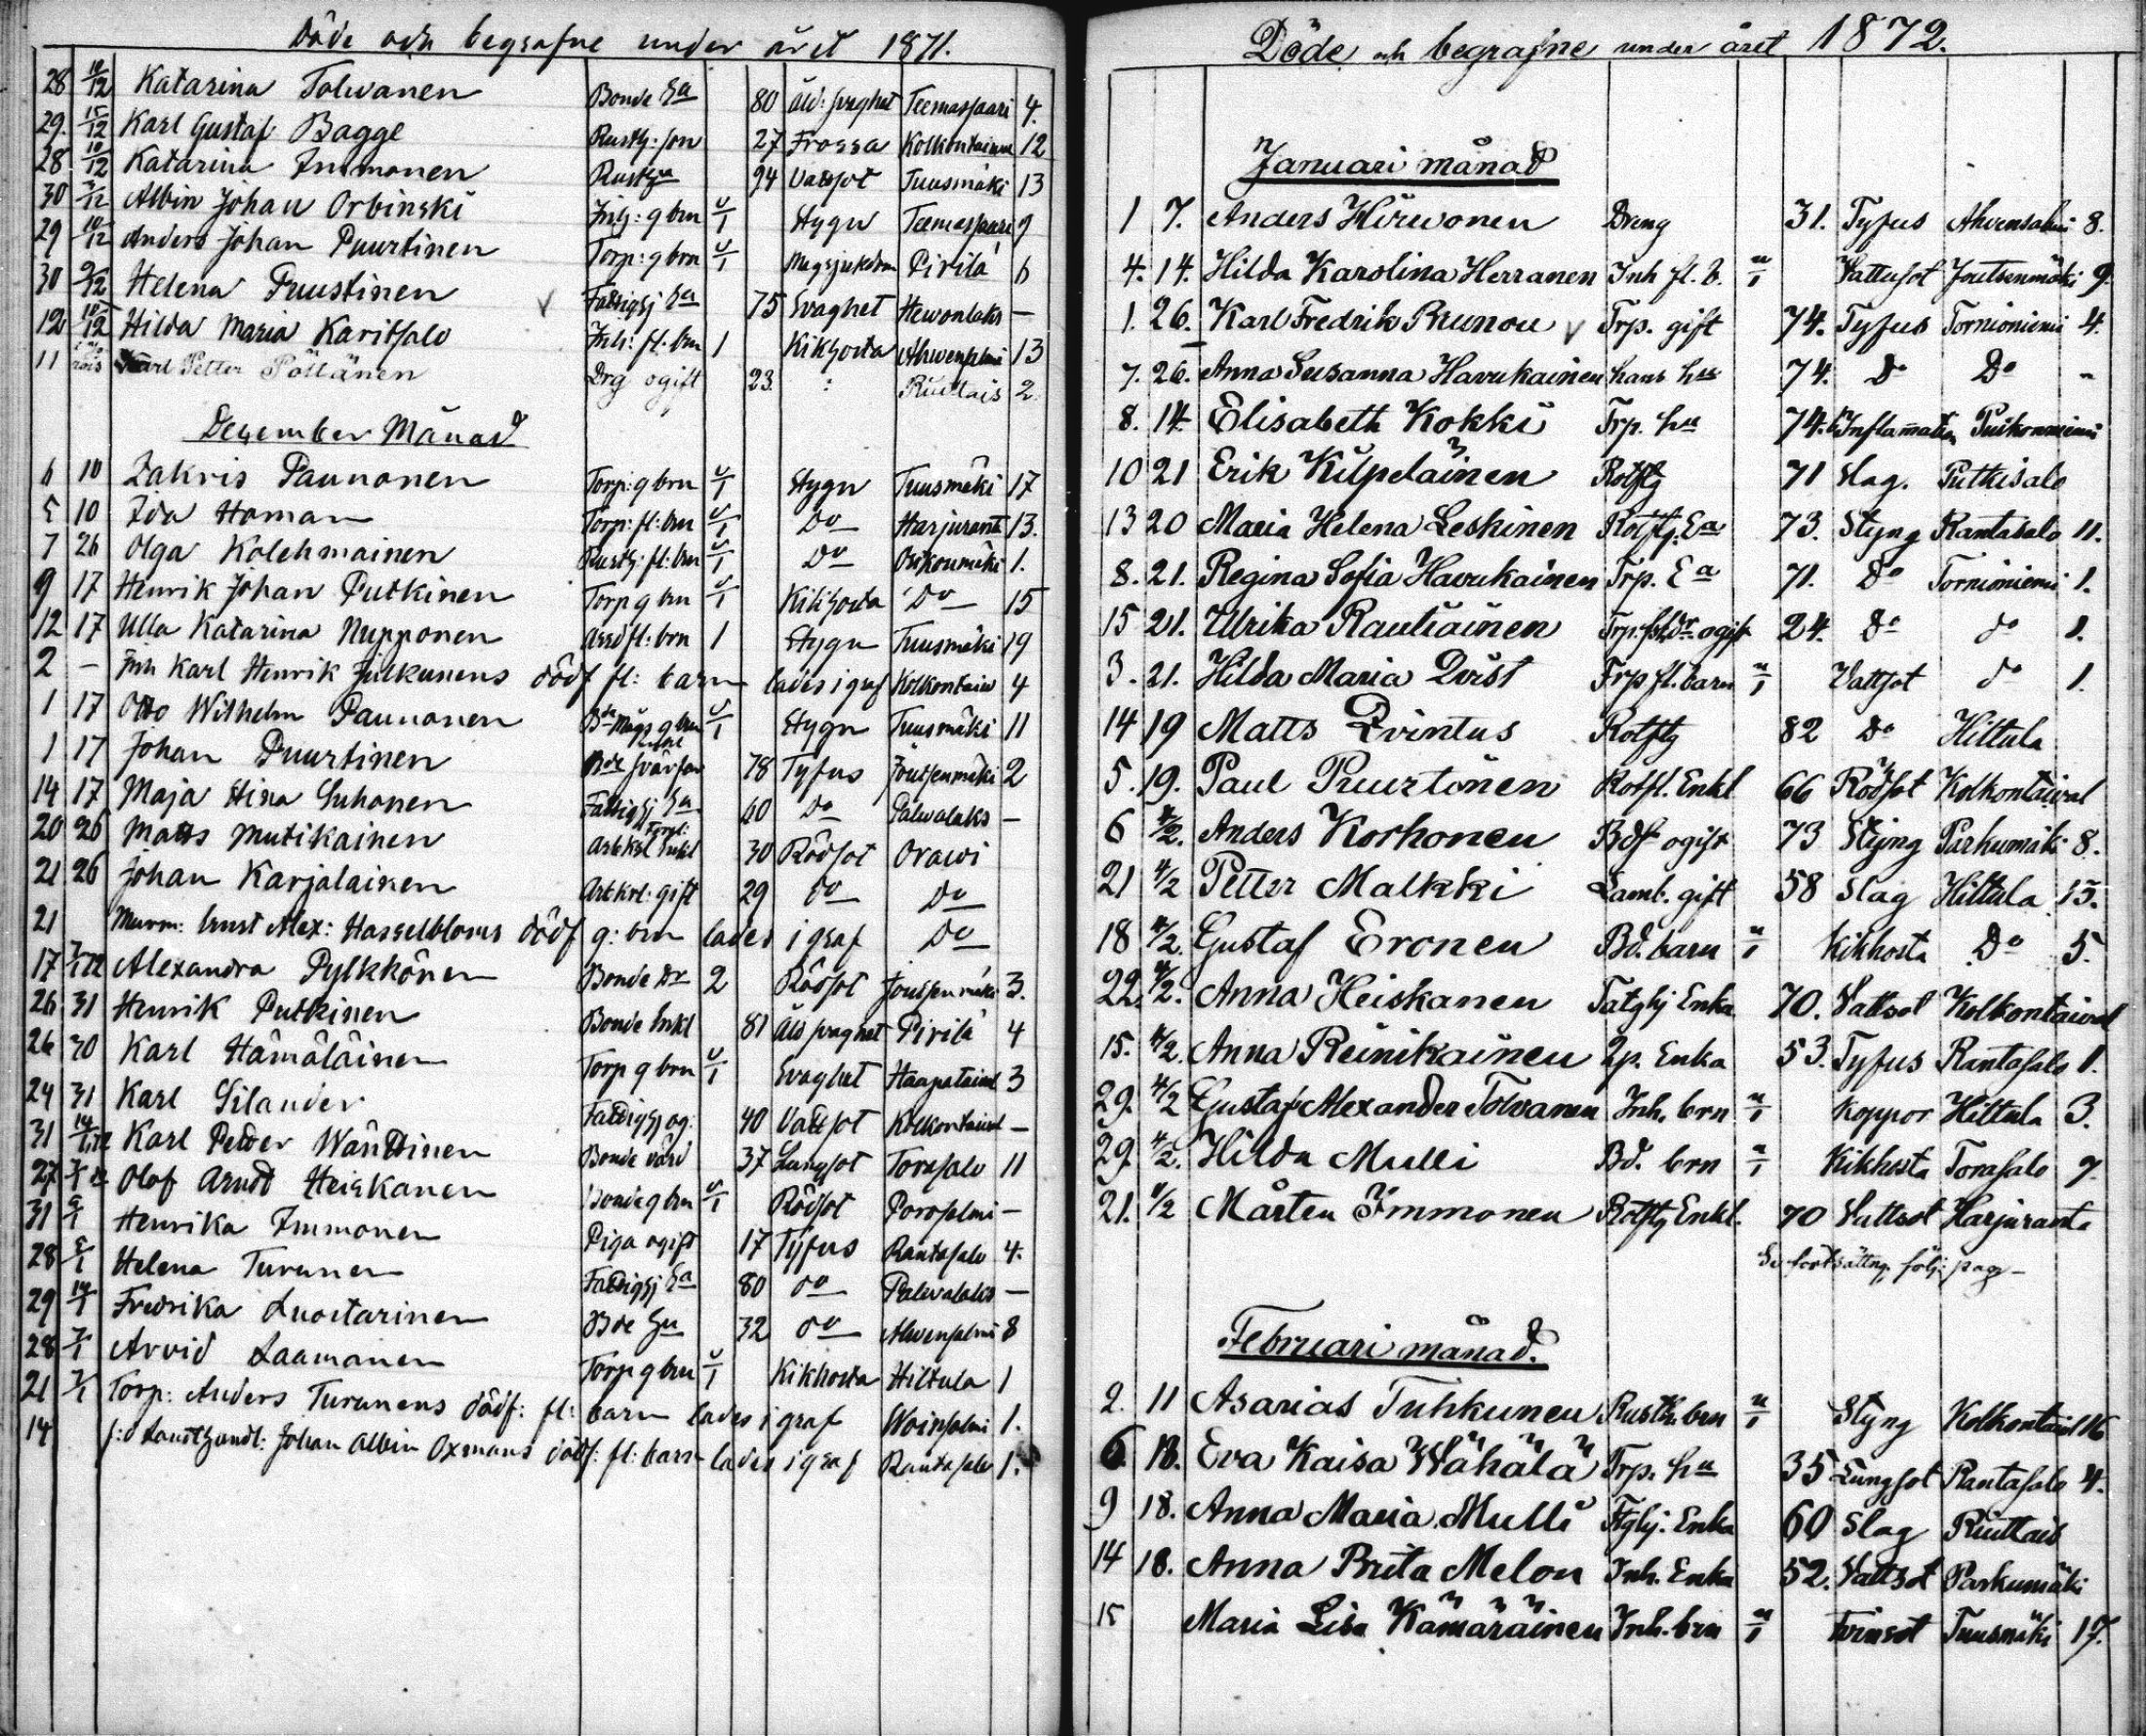 Döde och begrafne under året 1871.
28 10/12 Katarina Tolwanen Bonde Ea 80 Åld: svaghet Teemassaari 4.
29. 15/12 Karl Gustaf Bagge Rusth: son 27 Frossa Kolkontaiwal 12
28 10/12 Katarina Immonen 94 Vattsot Tuusmäki 13
30 3/12 Albin Johan Orbinski Inh: g brn u/1 Stygn Teemassaari 9
29 10/12 Anders Johan Puurtinen Torp: g brn u/1 Magsjukdom Pirilä 6
30 9/12 Helena Puustinen Fattighj Ea 75 Svaghet Hewonlaks —
12 10/12 Hilda Maria Karitsalo Inh: fl. brn 1 Kikhosta Ahwenslmi 13
11 Karl Petter Pöllänen Drg ogift 23 Ruuttais 2
Dezember Månad
6 10 Zakris Paunonen Torp: g brn u/1 Stygn Tuusmäki 17
5 10 Ida Homan Torp: fl: brn u/1 Do Harjuranta 13.
7 26 Olga Kolehmainen Rusth: fl: brn u/1 Do Oikoumäki 1.
9 17 Henrik Johan Putkinen Torp g brn u/1 Kikhosta Do 15
12 17 Ulla Katarina Nupponen fl: brn 1 Stygn Tuusmäki 19
2 — Inh Karl Henrik Julkunens dödf fl: barn lades i graf Kolkontaiw 4
1 17 Otto Wilhelm Paunonen Bde Mågs g brn u/1 Stygn Tuusmäki 11
1 17 Johan Puurtinen Bde svärfar 78 Tyfus Joutsenmäki 2
14 17 Maja Stina Suhonen Fattighj Ea 60 Do Palwalaks —
20 26 Matts Mutikainen Arbkrl Enkl 30 Rödsot Orawi
21 26 Johan Karjalainen Arbkrl: gift 29 Do Do
21 Murm: Ernst Alex: Hasselbloms dödf g: brn lades i graf Do
17 7/1 72 Alexandra Pylkkönen Bonde Dr 2 Rödsot Joutsenmäki 3.
26 31 Henrik Putkinen Bonde Enkl 81 Åld svaghet Pirilä 4
26 30 Karl Hämäläinen Torp g brn u/1 Svaghet Haapataiwl 3
24 31 Karl Silander Fattighj og: 40 Vattsot Kolkontaiwl —
31 14/1 72 Karl Petter Wänttinen Bonde värd 37 Lungsot Torasalo 11
27 7/1 72 Olof Arndt Heiskanen Bonde g brn u/1 Rödsot Porosalmi —
31 6/1 Henrika Immonen Piga ogift 17 Tyfus Rantasalo 4.
28 6/1 Helena Turunen Fattighj Ea 80 Do Palwalaks —
29 14/1 Fredrika Luostarinen Bde Hu 32 Do Ahwensalmi 8
28 7/1 Arvid Laamanen Torp g brn u/1 Kikhosta Hiltula 1
21 7/1 Torp: Anders Turunens dödf: fl: barn lades i graf Woinsalmi 1.
14 f: d Landthandl: Johan Albin Oxmans dödf: fl: barn lades i graf Rantasalo 1.
Döde och begrafne under året 1872.
Januari månad
1 7. Anders Hirwonen Dreng 31. Tyfus Ahvensalmi 8.
4. 14. Hilda Karolina Herranen Inh fl. b. u/1 Vattusot Joutsenmäki 9.
1. 26. Karl Fredrik Brunou Trp. gift 74. Tyfus Tornioniemi 4.
7. 26. Anna Susanna Havukainen hans hu 74. Do Do "
8. 14. Elisabeth Kokki Trp. hu 74. Inflamation Puikonniemi
10 21 Erik Kilpeläinen Rotftg 71 Slag. Putkisalo
13 20 Maria Helena Leskinen Rotftg. Ea 73. Styng Rantasalo 11.
8. 21. Regina Sofia Havukainen Trp. Ea 71. Do Tornioniemi 1.
15 21. Ulrika Rautiainen ogift 24. Do do 1.
3. 21. Hilda Maria Qvist Trp fl. barn u/1 Vattsot do 1.
14 19 Matts Qvintus Rotftg 82 Do Hiltula
5. 19. Paul Puurtonen Rotfl. Enkl 66 Rödsot Kolkontaival
6 4/2. Anders Korhonen Bdf ogift 73 Styng Parkumäki 8.
21 4/2 Petter Malkki Lamb. gift 58 Slag Hiltula 15.
18 4/2 Gustaf Eronen Bd. barn u/1 Kikhosta Do 5.
22. 4/2. Anna Heiskanen Fatghj Enka 70. Vattsot Kolkontaival
15. 4/2. Anna Reinikainen Enka 53. Tyfus Rantasalo 1.
29. 4/2 Gustaf Alexander Tolvanen Inh. brn u/1 Koppor Hiltula 3.
29. 4/2. Hilda Mulli Bd. brn u/1 Kikhosta Torasalo 7.
21. 4/2 Mårten Immonen Rotftg Enkl. 70 Vattsot Harjuranta
Se fortsättng följ: pag —
Februari månad.
2. 11 Asarias Tuhkunen Rusth. brn u/1 Styng Kolkontaival 16
6 18. Eva Kaisa Wähälä Trp. hu 35 Lungsot Rantasalo 4.
9 18. Anna Maria Mulli Ftghj. Enka 60 Slag Ruuttais
14 18. Anna Brita Melon Inh. Enka 52. Vattsot Parkumäki
15 Maria Lisa Kämäräinen Inh. brn u/1 Tvinsot Tuusmäki 17.